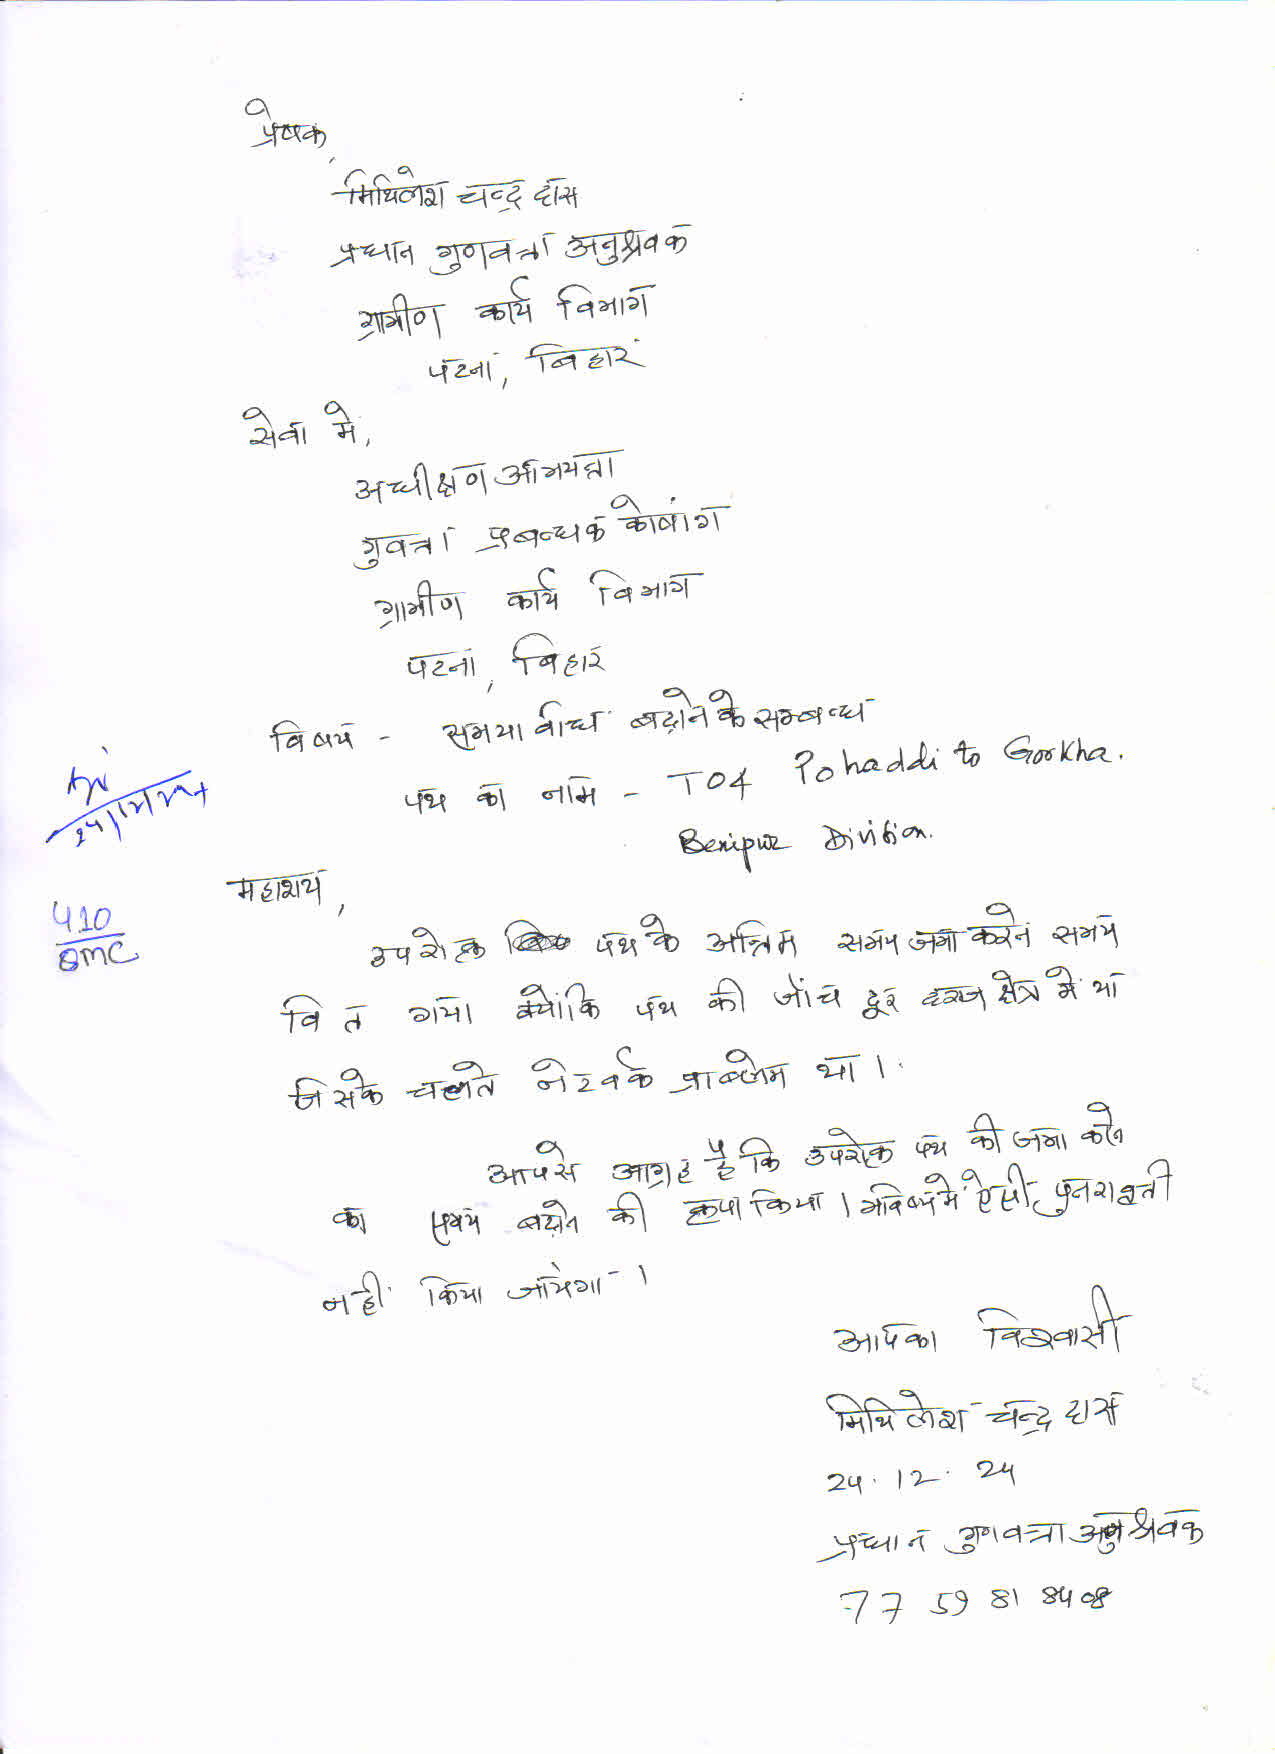 प्रेषक,
मिथिलेश चन्द्र दास
प्रधान गुणवत्ता अनुश्रवक
ग्रामीण कार्य विभाग
पटना, बिहार
सेवा मे,
अधीक्षण अभियन्ता
गुवत्ता प्रबन्धक कोषांग
ग्रामीण कार्य विभाग
पटना, बिहार
विषय - समयावधि बढ़ाने के सम्बन्ध
पथ का नाम - T04 Pohaddi to Gorkha.
Benipur Division.
24/12/2024
महाशय,
410
QMC
उपरोक्त पथ के अन्तिम समय जमा करने समय
वित गया क्योंकि पथ की जाँच दूर दराज क्षेत्र में था
जिसके चलते नेटवर्क प्राब्लेम था।
आपसे आग्रह है कि उपरोक्त पथ की जमा करने
का समय बढ़ाने की कृपा किया। भविष्य में ऐसी पुनरावृत्ती
नही किया जायेगा।
आपका विश्वासी
मिथिलेश चन्द्र दास
24.12.24
प्रधान गुणवत्ता अनुश्रवक
77 59 81 8408